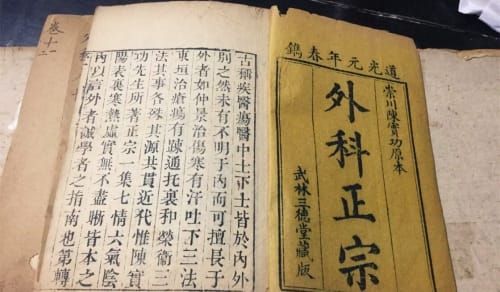 道光元年春鐫
崇川陳實功原本
外科正宗
武林三德堂藏版
古稱疾醫瘍醫中士下士皆於內外
別之然未有不明于內而可擅長于
外者如仲景治傷寒有汗吐下三法
東垣治瘡瘍有疎通托裏和榮衛三
法其事各殊其源共貫近代惟陳實
功先生所著正宗一集七情六氣陰
陽表裏寒熱虛實無不盡晰皆本之
內以言外者誠學者之指南也第轉
卷十二